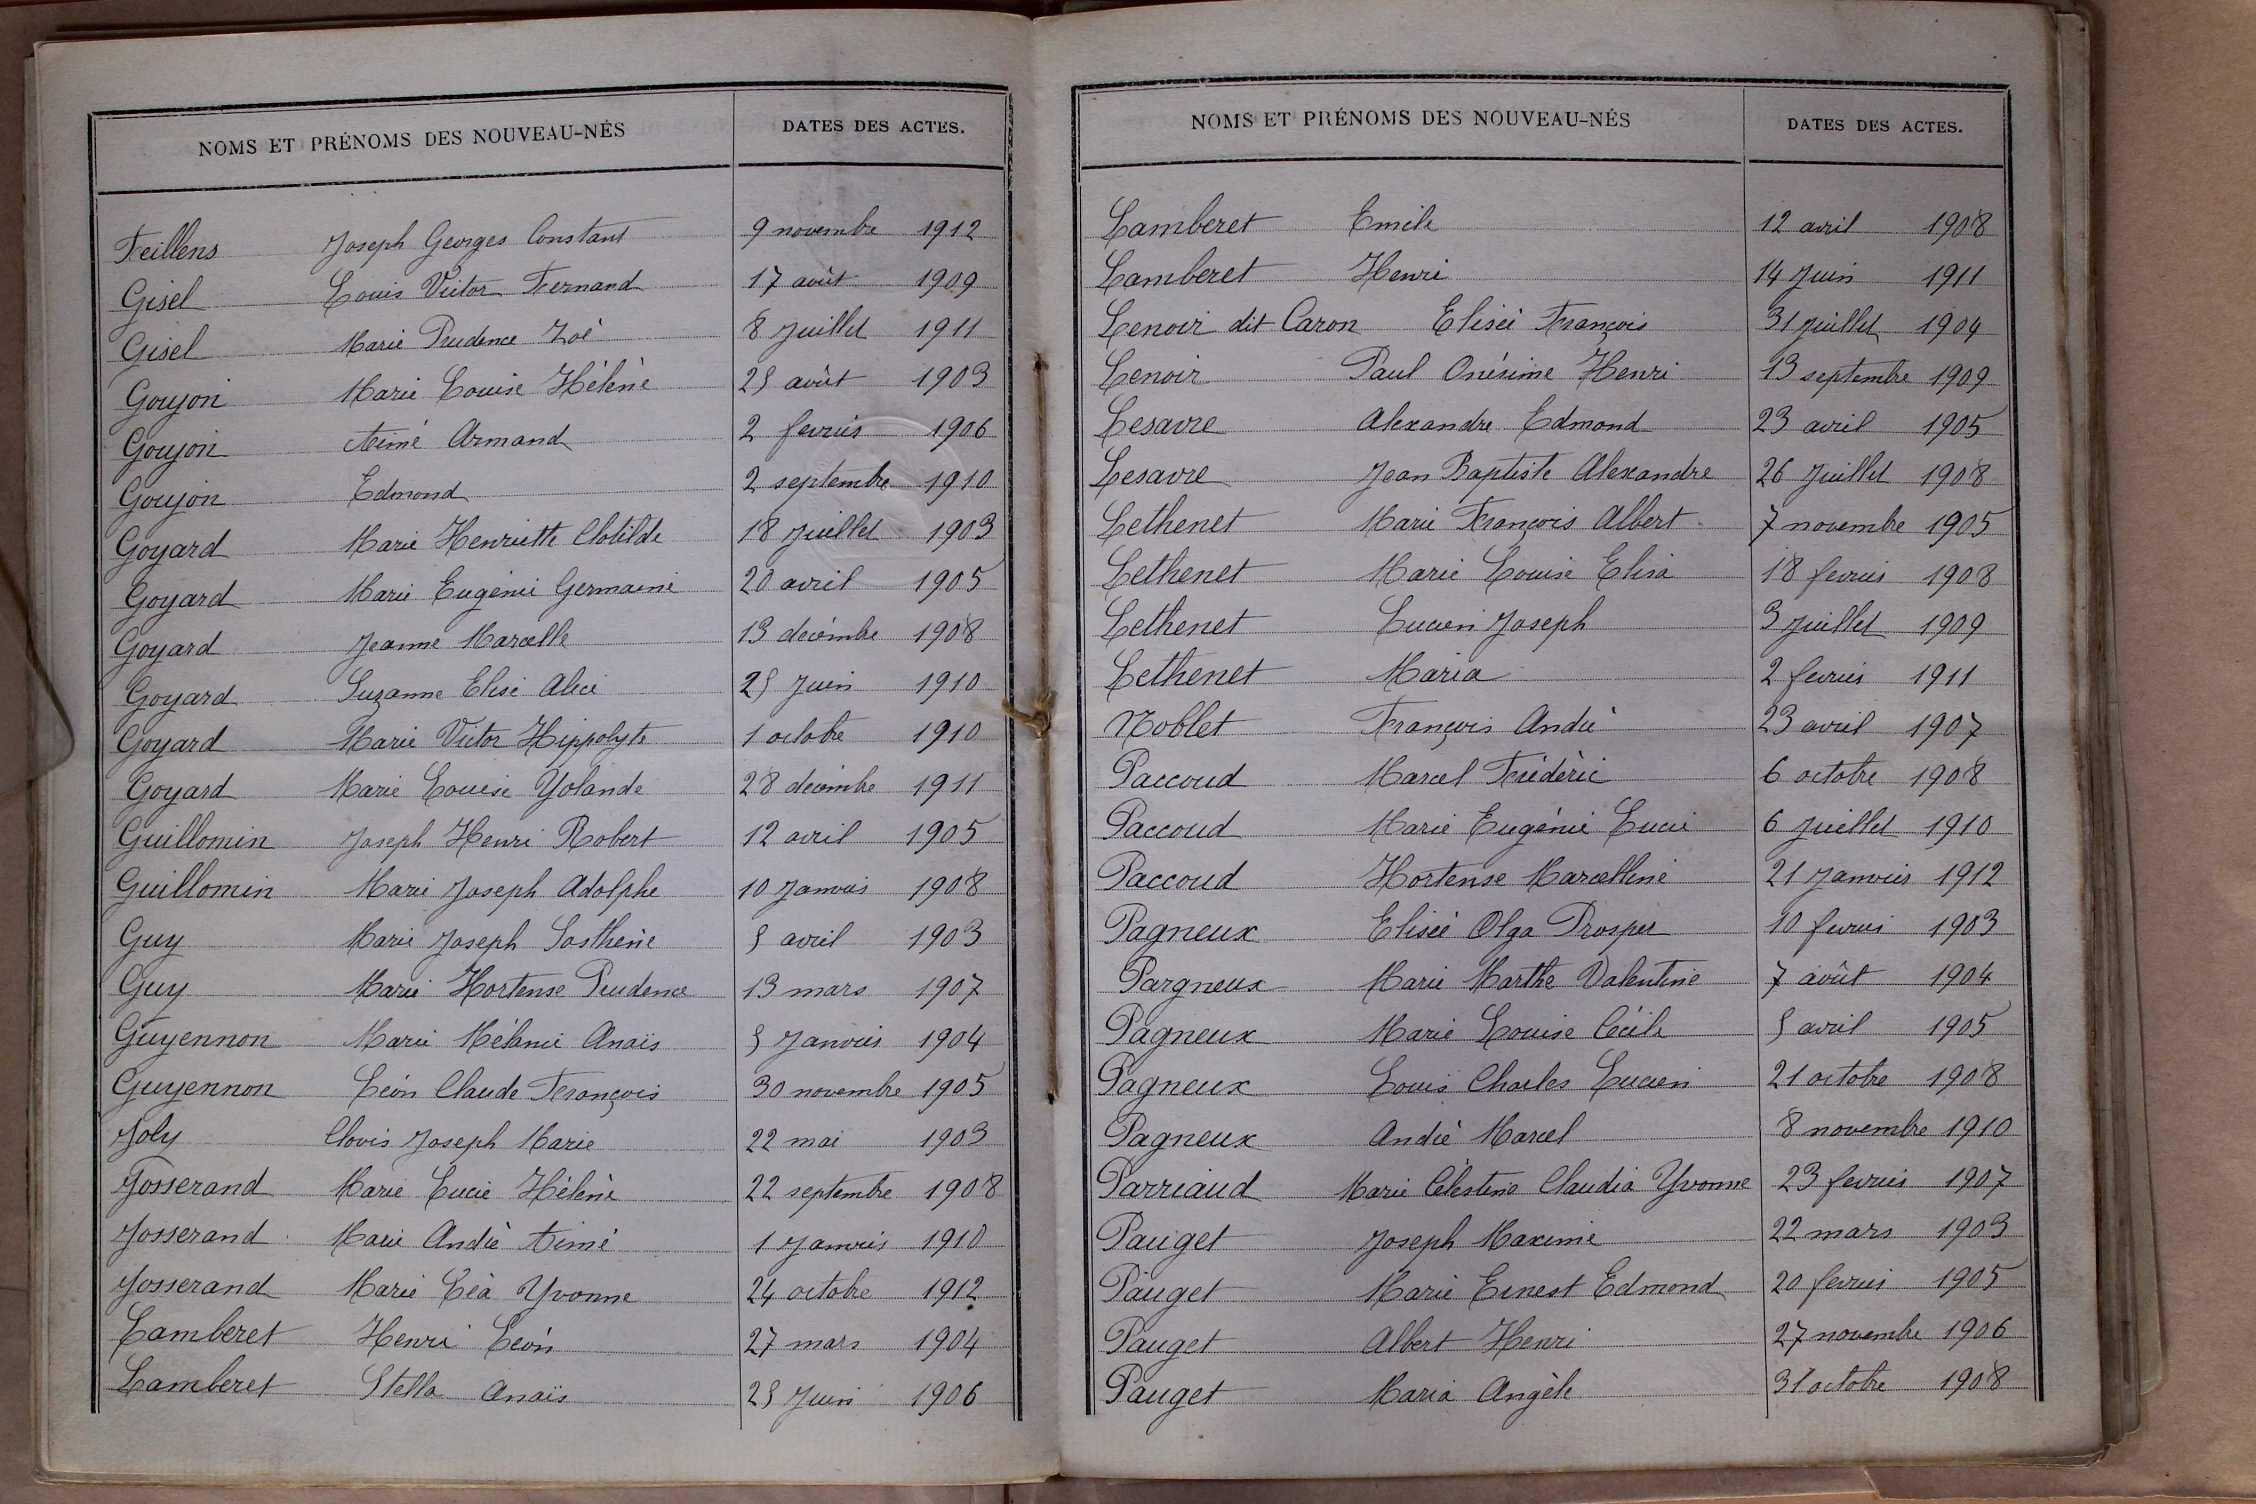 NOMS ET PRÉNOMS DES NOUVEAU-NÉS DATES DES ACTES.
Feillens Joseph Georges Constant 9 novembre 1912
Gisel Louis Victor Fernand 17 août 1909
Gisel Marie Prudence Zoé 8 Juillet 1911
Goujon Marie Louise Hélène 25 août 1903
Goujon Aimé Armand 2 fevrier 1906
Goujon Edmond 2 septembre 1910
Goyard Marie Henriette Clotilde 18 Juillet 1903
Goyard Marie Eugénie Germaine 20 avril 1905
Goyard Jeanne Marcelle 13 decembre 1908
Goyard Suzanne Elise Alice 25 Juin 1910
Goyard Marie Victor Hippolyte 1 octobre 1910
Goyard Marie Louise Yolande 28 decembre 1911
Guillomin Joseph Henri Robert 12 avril 1905
Guillomin Marie Joseph Adolphe 10 Janvier 1908
Guy Marie Joseph Sosthène 5 avril 1903
Guy Marie Hortense Prudence 13 mars 1907
Guyennon Marie Mélanie Anaïs 5 Janvier 1904
Guyennon Léon Claude François 30 novembre 1905
Joly Clovis Joseph Marie 22 mai 1903
Josserand Marie Lucie Hélène 22 septembre 1908
Josserand Marie André Aimé 1 Janvier 1910
Josserand Marie Léa Yvonne 24 octobre 1912
Lamberet Henri Léon 27 mars 1904
Lamberet Stella Anaïs 25 Juin 1906
NOMS ET PRÉNOMS DES NOUVEAU-NÉS DATES DES ACTES.
Lamberet Emile 12 avril 1908
Lamberet Henri 14 Juin 1911
Lenoir dit Caron Elisée François 31 Juillet 1904
Lenoir Paul Onésime Henri 13 septembre 1909
Lesavre Alexandre Edmond 23 avril 1905
Lesavre Jean Baptiste Alexandre 26 Juillet 1908
Lethenet Marie François Albert 7 novembre 1905
Lethenet Marie Louise Elisa 18 fevrier 1908
Lethenet Lucien Joseph 3 Juillet 1909
Lethenet Maria 2 fevrier 1911
Noblet François André 23 avril 1907
Paccoud Marcel Frédéric 6 octobre 1908
Paccoud Marie Eugénie Lucie 6 Juillet 1910
Paccoud Hortense Marcelline 21 Janvier 1912
Pagneux Elisée Olga Prosper 10 fevrier 1903
Pargneux Marie Marthe Valentine 7 août 1904
Pagneux Marie Louise Cécile 5 avril 1905
Pagneux Louis Charles Lucien 21 octobre 1908
Pagneux André Marcel 8 novembre 1910
Parriaud Marie Célestine Claudia Yvonne 23 fevrier 1907
Pauget Joseph Maxime 22 mars 1903
Pauget Marie Ernest Edmond 20 fevrier 1905
Pauget Albert Henri 27 novembre 1906
Pauget Maria Angèle 31 octobre 1908